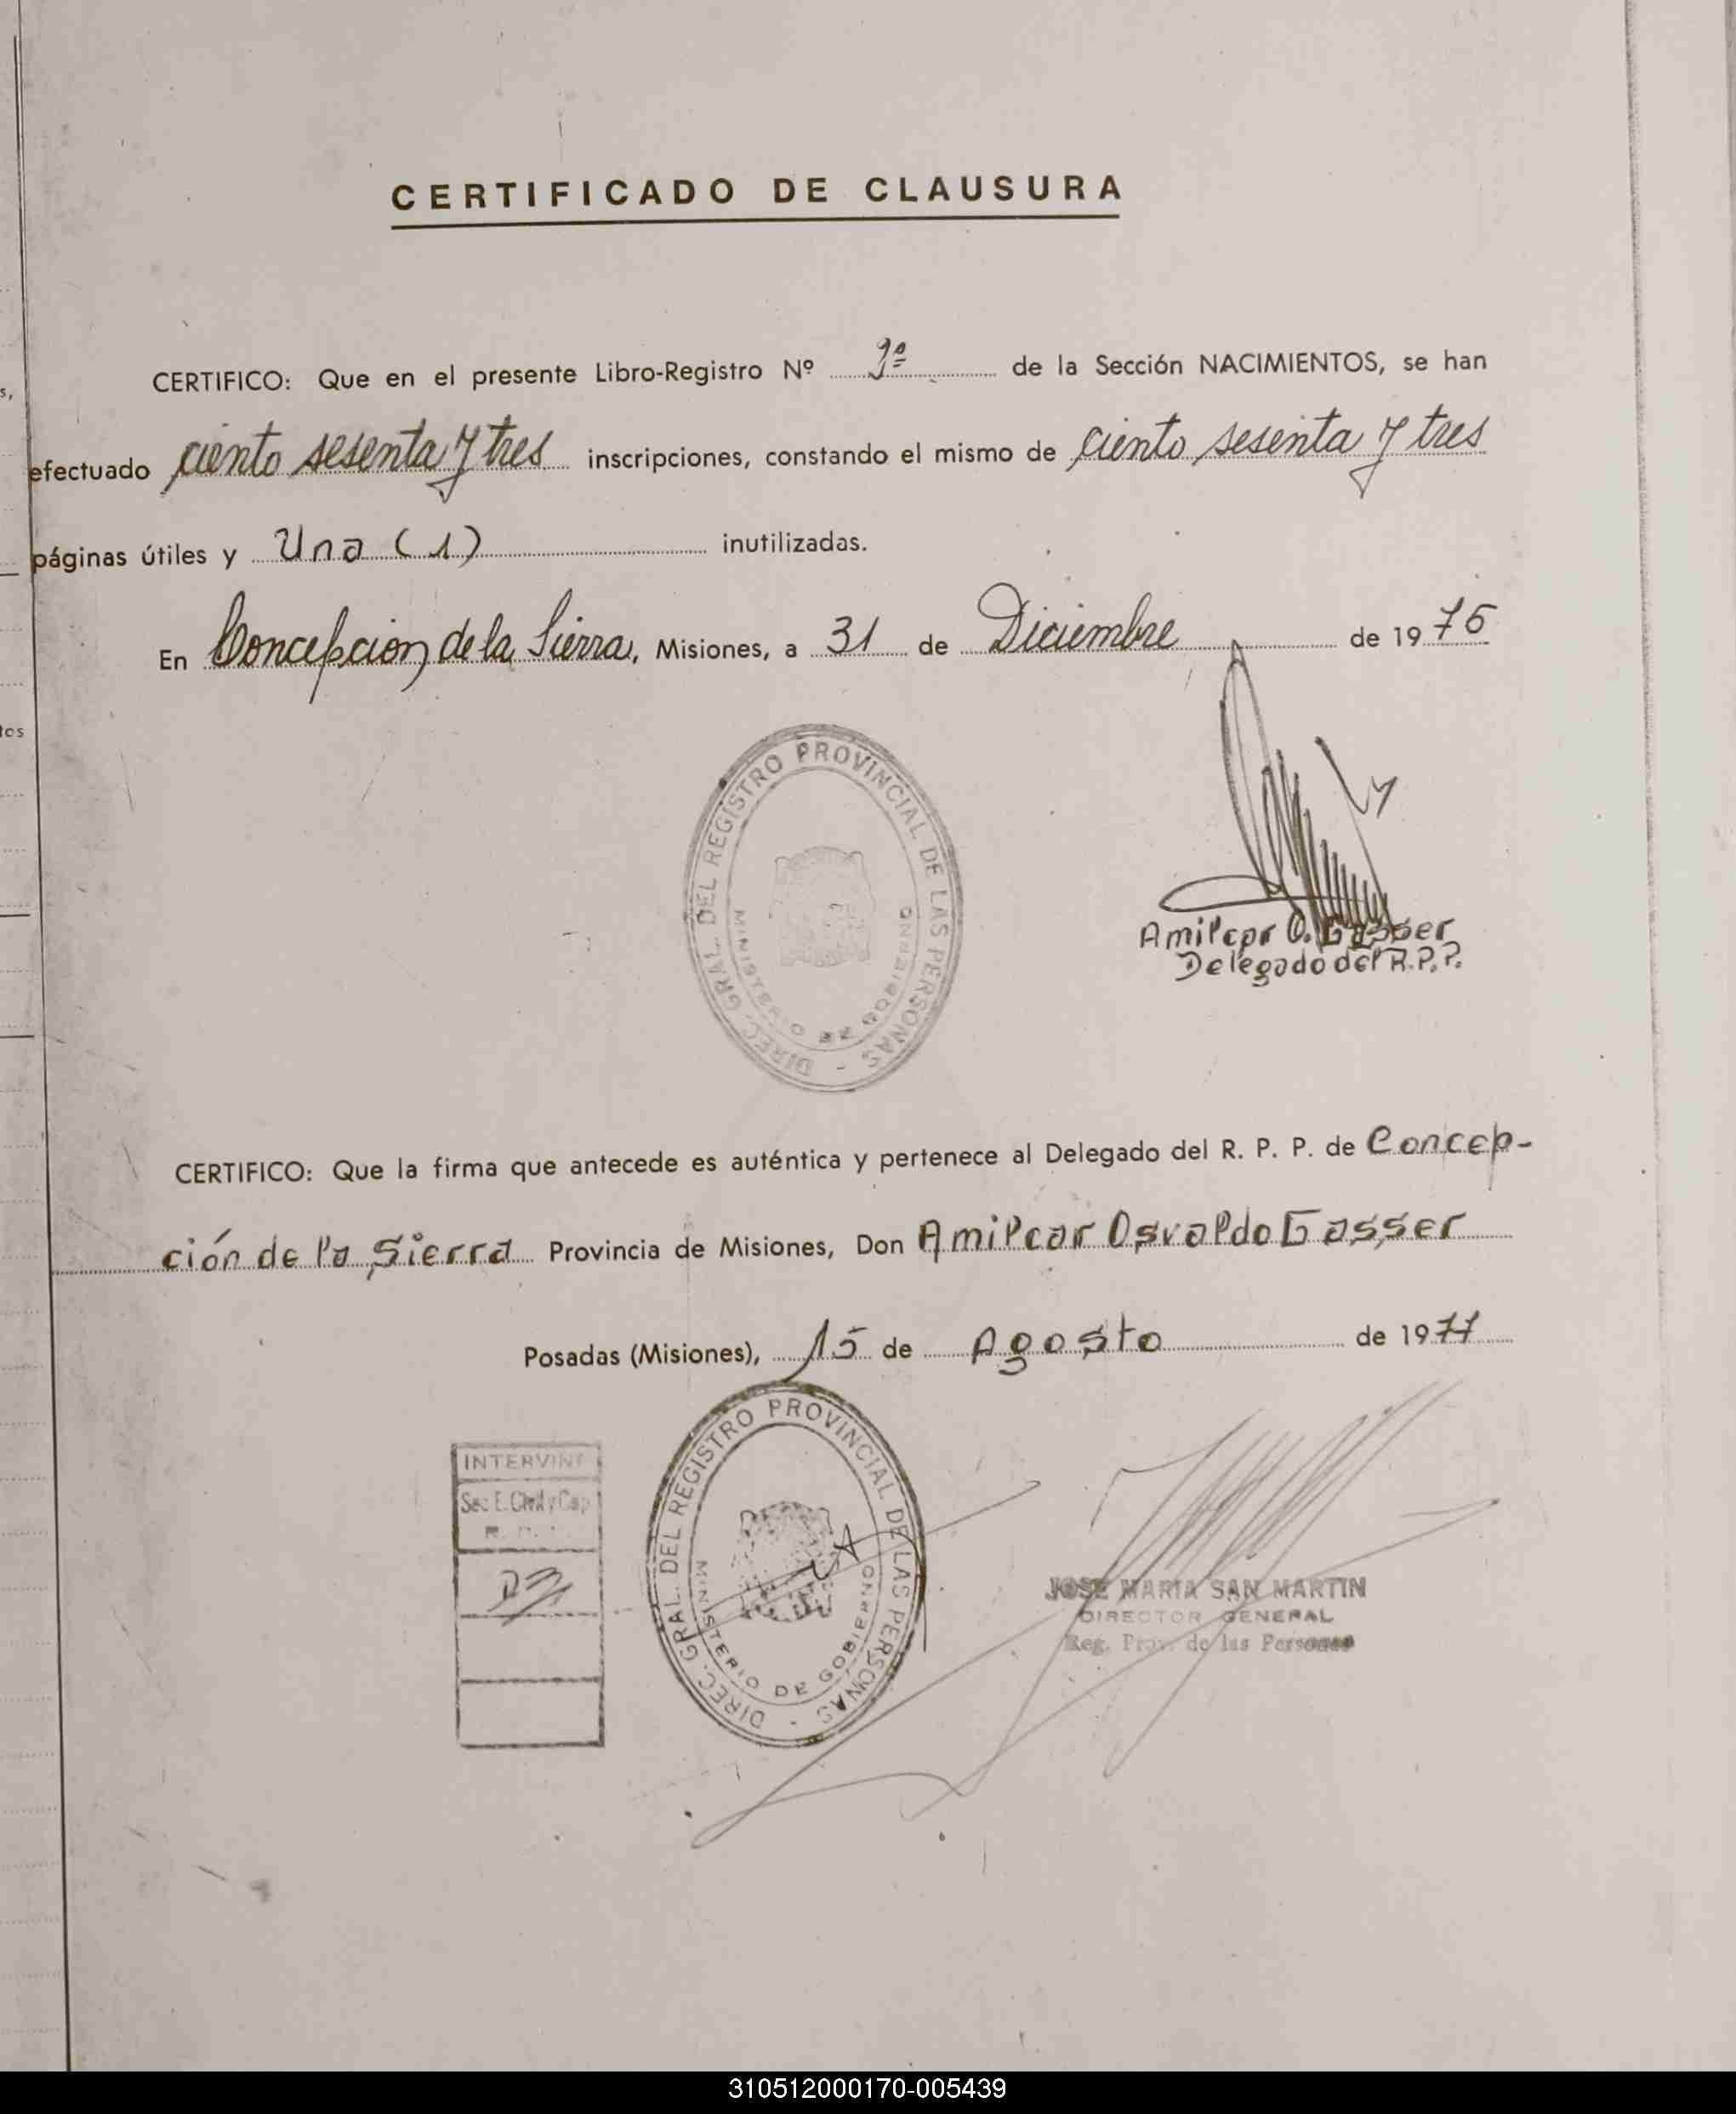 CERTIFICADO DE CLAUSURA
CERTIFICO: Que en el presente Libro-Registro Nº de la Sección NACIMIENTOS, se han
efectuado ciento sesenta y tres inscripciones, constando el mismo de ciento sesenta y tres
páginas útiles y Una (1) inutilizadas.
En Concepcion de la Sierra, Misiones, a 31 de Diciembre de 1976
DIREC. GRAL. DEL REGISTRO PROVINCIAL DE LAS PERSONAS -
MINISTERIO DE GOBIERNO
Amilcar O. Gasser
Delegado del R.P.P.
CERTIFICO: Que la firma que antecede es auténtica y pertenece al Delegado del R. P. P. de Concep-
ción de la Sierra Provincia de Misiones, Don Amilcar Osvaldo Gasser
Posadas (Misiones), 15 de Agosto de 1977
INTERVINO
Sec E. Civil y Cap
DIREC. GRAL. DEL REGISTRO PROVINCIAL DE LAS PERSONAS -
MINISTERIO DE GOBIERNO
JOSE MARIA SAN MARTIN
DIRECTOR GENERAL
Reg. Prov. de las Personas
310512000170-005439